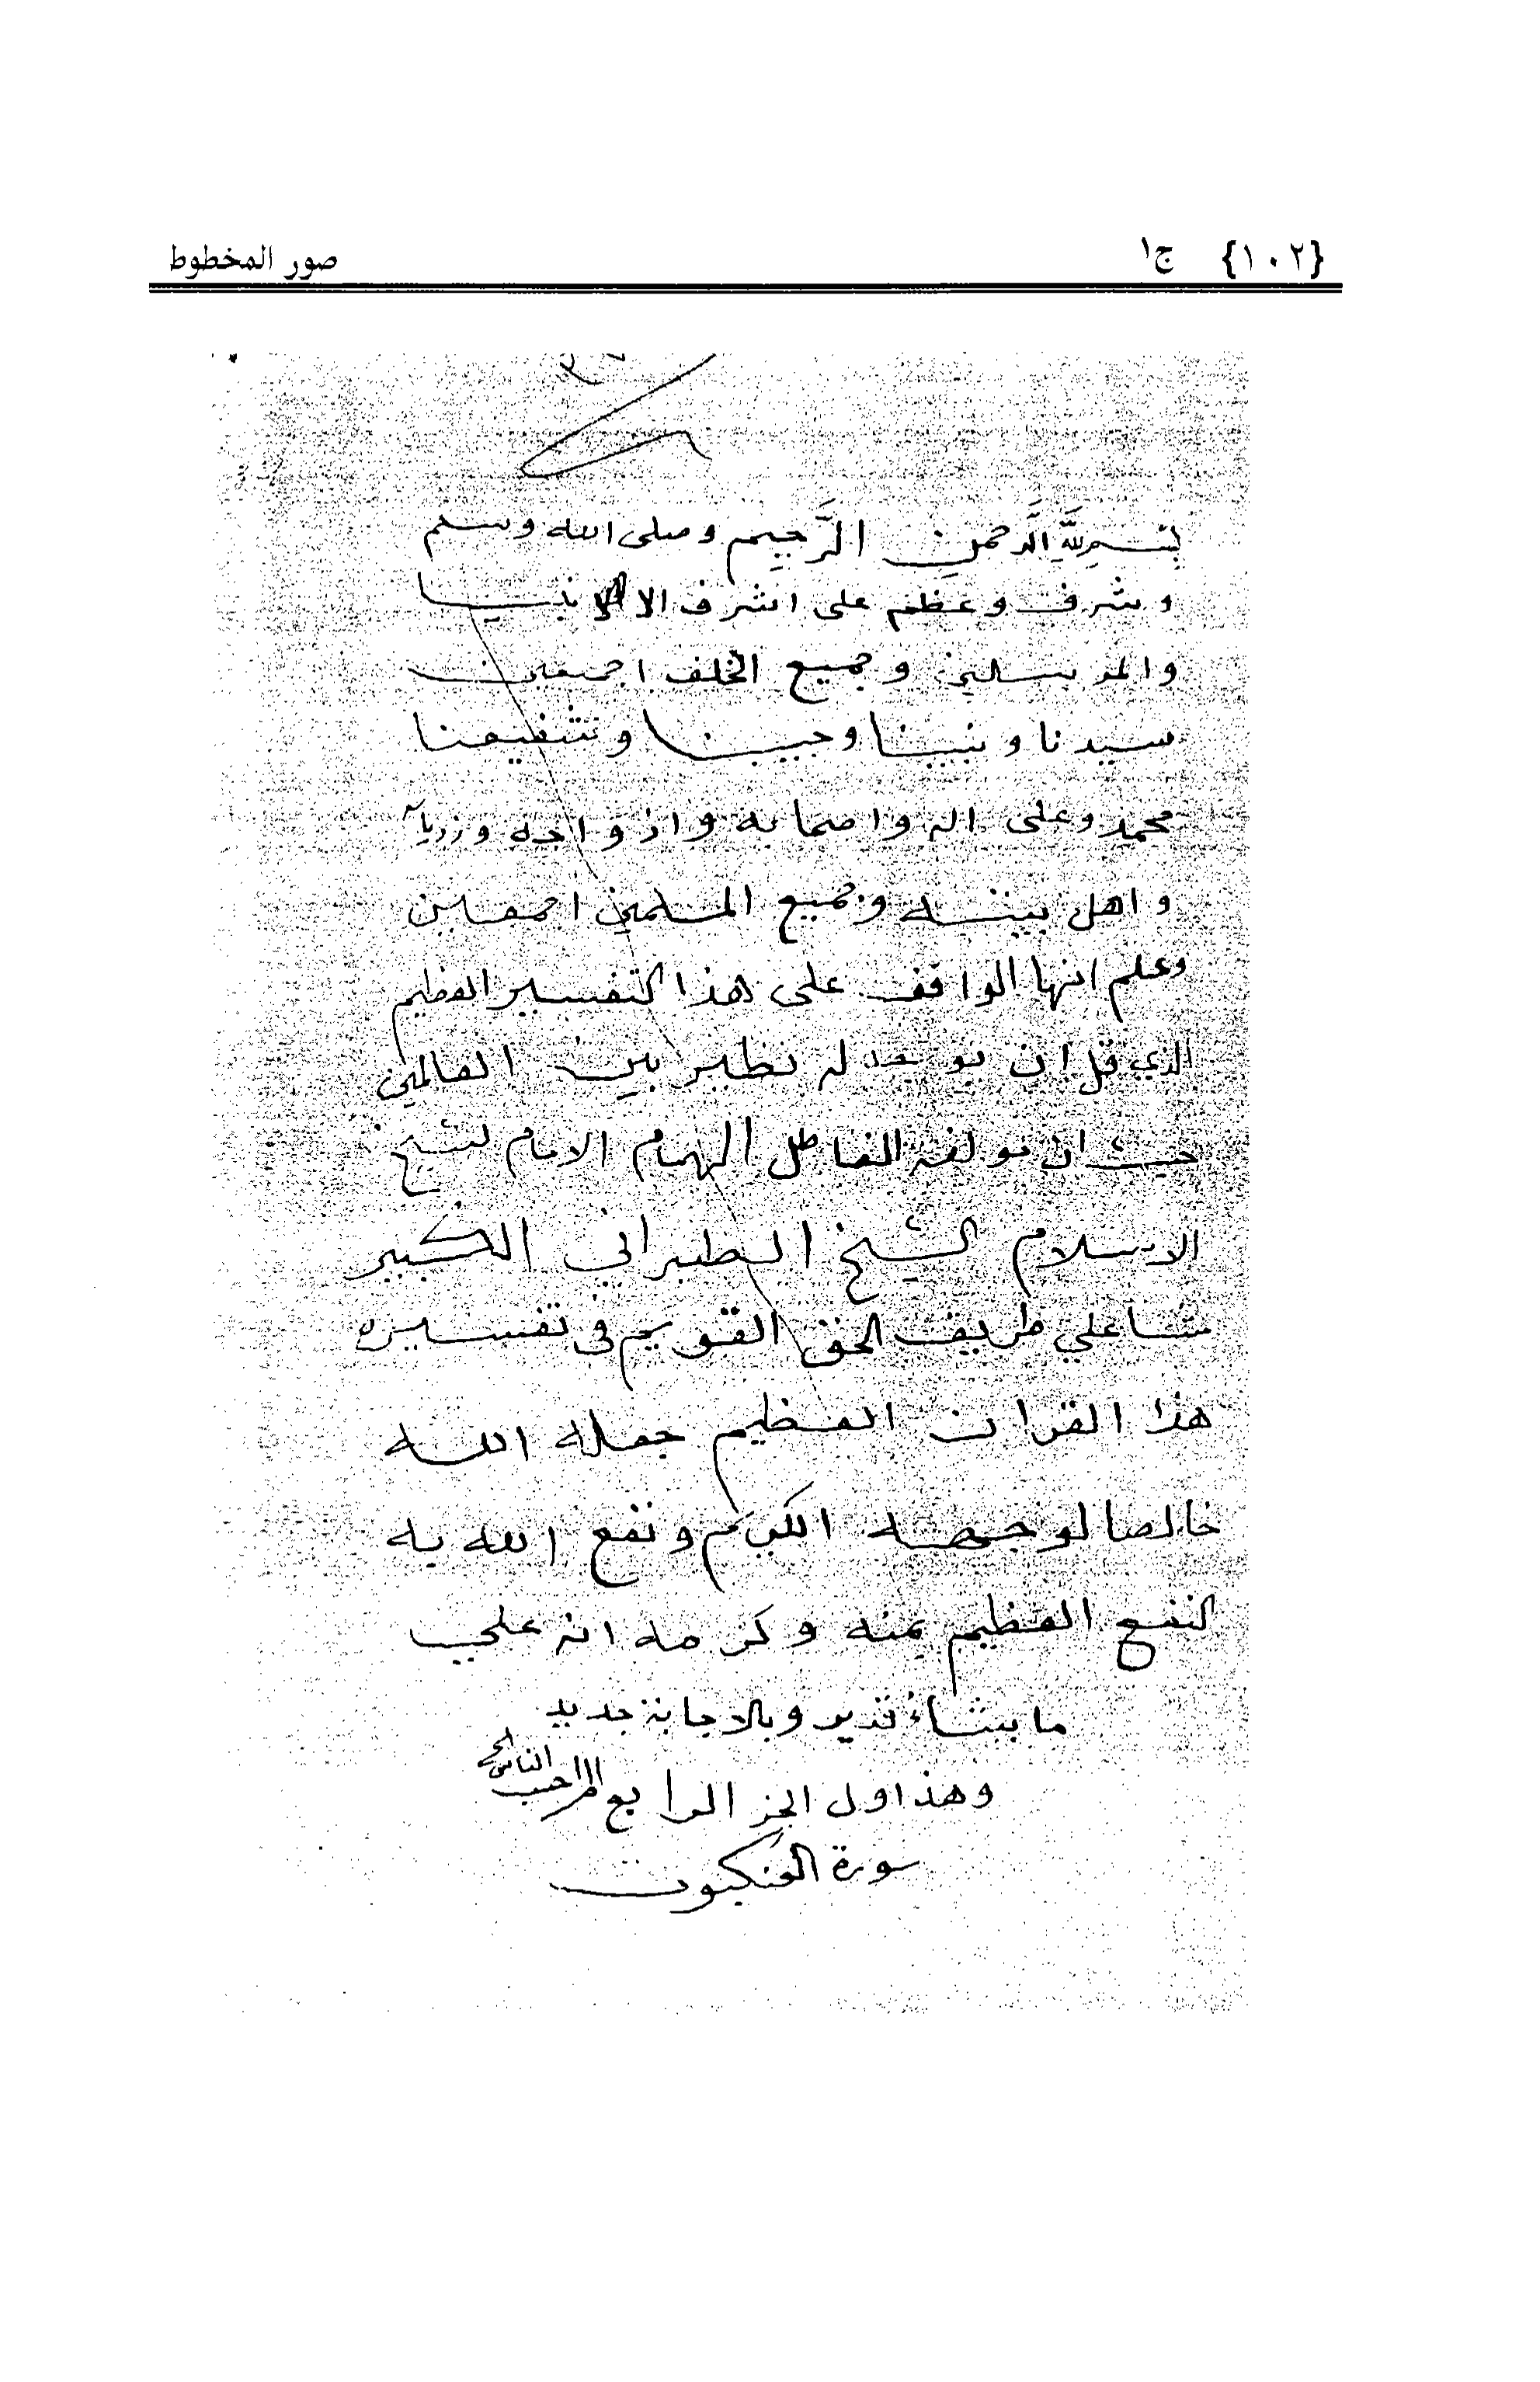 {١٠٢} ج١ صور المخطوط
بسم الله الرحمن الرحيم وصلى الله وسلم
وشرف وعظم على اشرف الانبيا
والمرسلين وجميع الخلف اجمعين
سيدنا ونبينا وحبيبنا وشفيعنا
محمد وعلى اله واصحابه وازواجه
واهل بيته وجميع المسلمين اجمعين
وعلم ايها الواقف على هذا التفسير العظيم
الذي قل ان يوجد له نظير بين العالمين
حيث ان مولفه الفاضل الهمام الامام لشيخ
الاسلام الشيخ الطبراني الكبير
مشا على طريف الحق القويم في تفسيره
هذا القران العظيم جعله الله
خالصا لوجهه الكريم ونفع الله به
النفع العظيم بمنه وكرمه انه على
ما يشاء قدير وبالاجابة جدير
وهذا اول الجز الرابع احب الناس
سورة العنكبوت